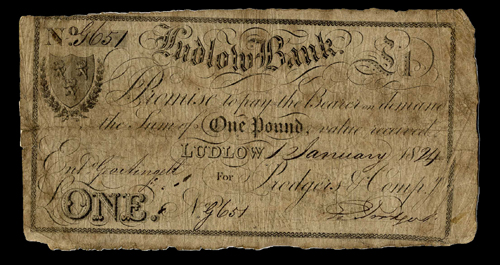 No. 9651
Ludlow Bank. £1
I Promise to pay the Bearer on demand
the Sum of One Pound, value received
LUDLOW 1 January 1824
Entd
For Rodgers & Compy.
ONE. No 9651